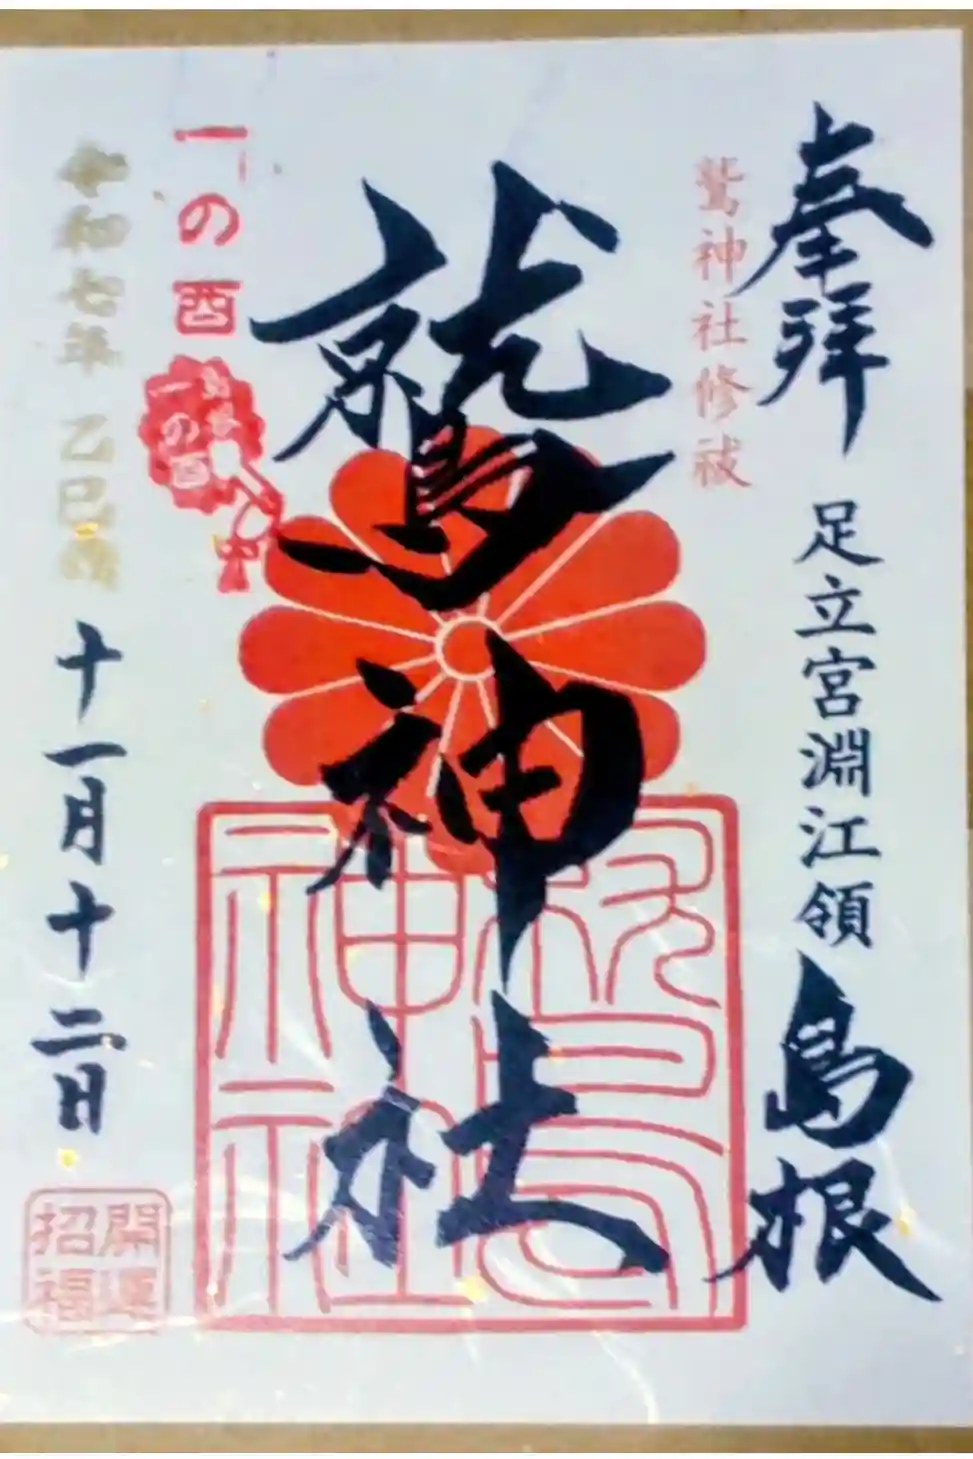 奉拝
鷲神社修祓
足立宮淵江領
島根
鷲神社
神社
一の酉
一の酉
令和七年 乙巳歳
十一月十二日
開運
招福